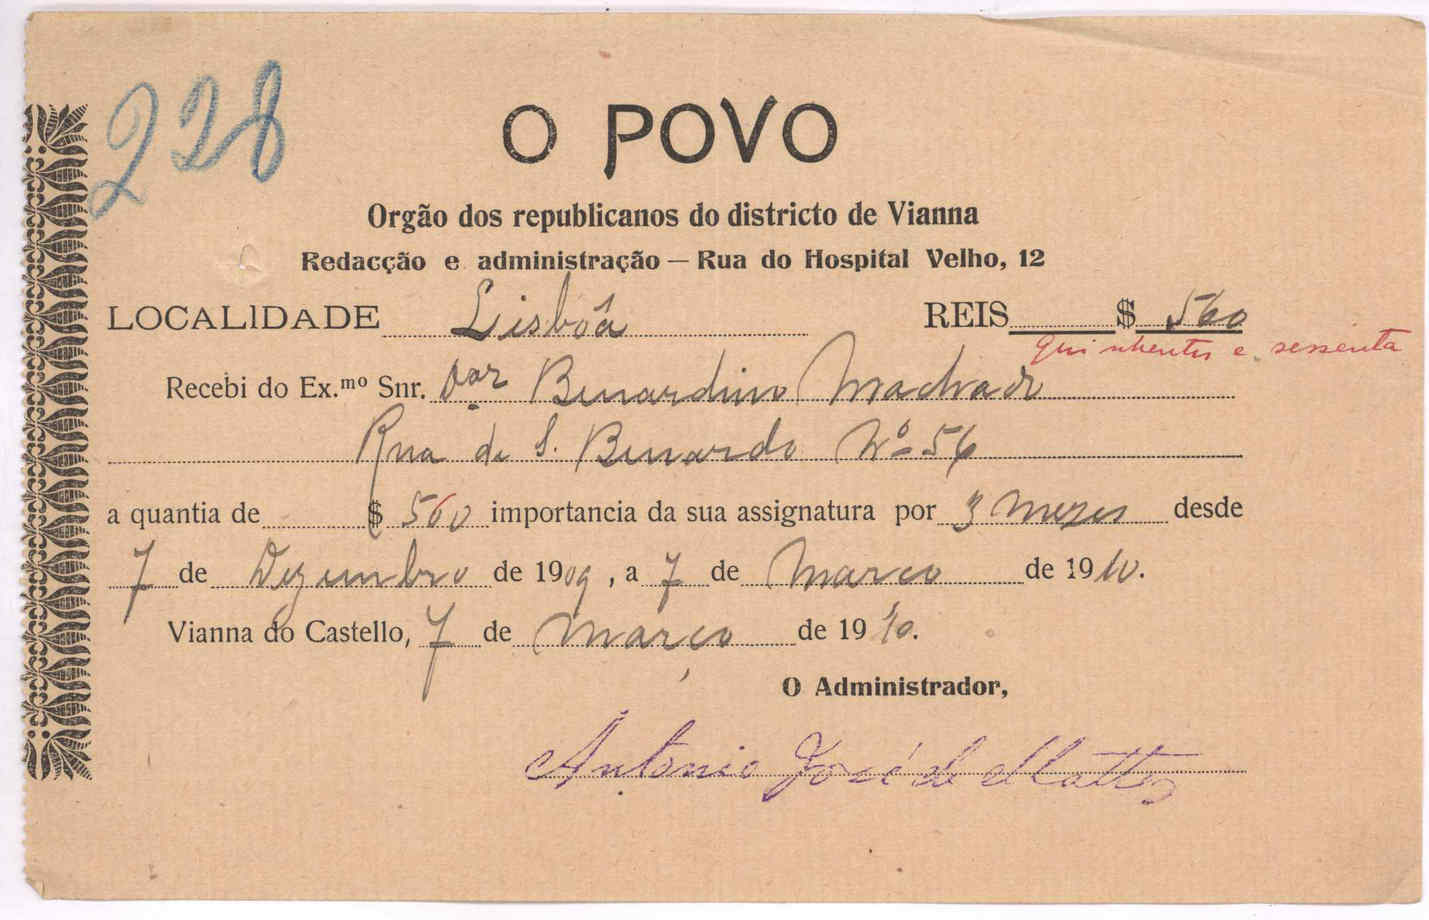 228
O POVO
Orgão dos republicanos do districto de Vianna
Redacção e administração — Rua do Hospital Velho, 12
LOCALIDADE Lisbôa REIS $ 560
quinhentos e sessenta
Recebi do Ex.mo Snr. Dor Bernardino Machado
Rua de S. Bernardo Nº 56
a quantia de $ 560 importancia da sua assignatura por 3 mezes desde
7 de Dezembro de 1909, a 7 de Março de 1910.
Vianna do Castello, 7 de Março de 1910.
O Administrador,
Antonio José de Mattos